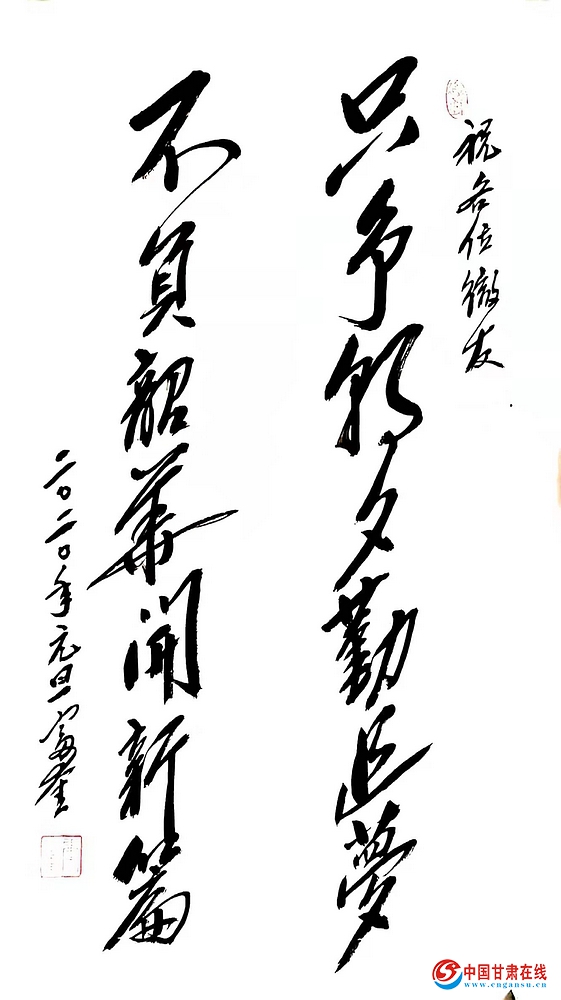 祝各位微友
只争朝夕勤追夢
不負韶華開新篇
二〇二〇年元旦富奎
中国甘肃在线
www.cngansu.cn